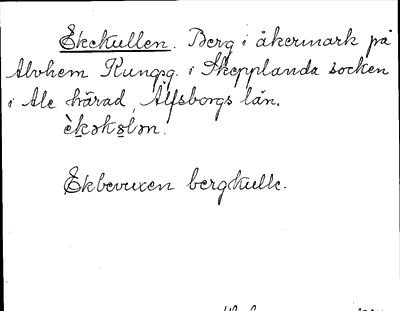 Ekekullen. Berg i åkermark på
Alvhem Kungsg. i Skepplanda socken
i Ale härad, Älfsborgs län.
èkəkɞlən.
Ekbevuxen bergkulle.